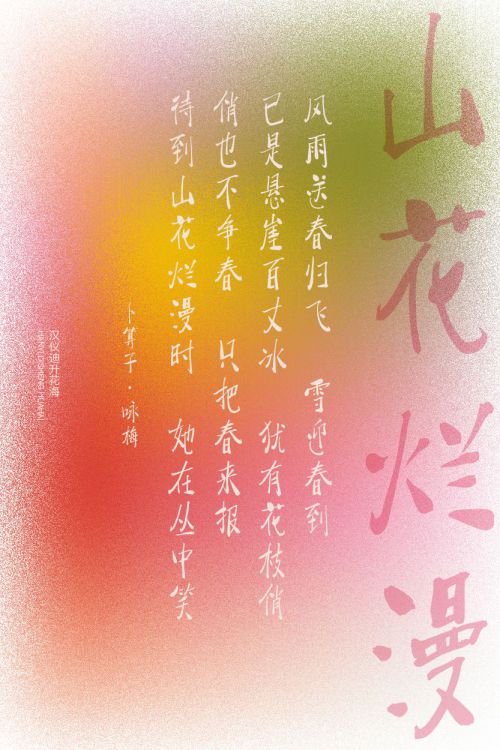 山花烂漫
风雨送春归飞 雪迎春到
已是悬崖百丈冰 犹有花枝俏
俏也不争春 只把春来报
待到山花烂漫时 她在丛中笑
卜算子·咏梅
汉仪迪升花海